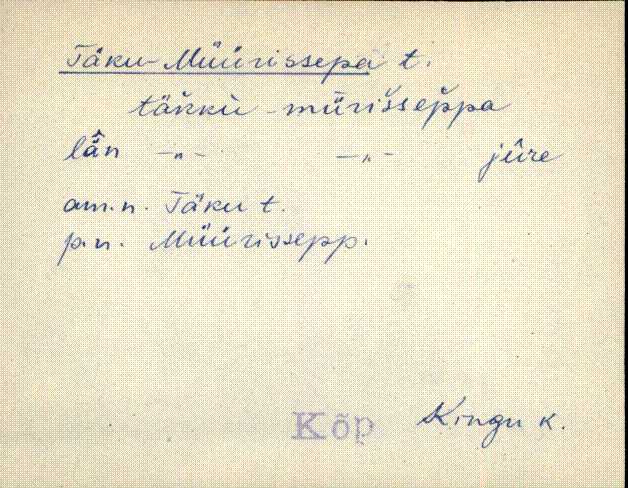 Täku-Müürissepa t.
täkkù-mürisseppa
lä̂n -"- -"- jûre
am.n. Täku t.
p.n. Müürissepp.
Kõp Kingu k.